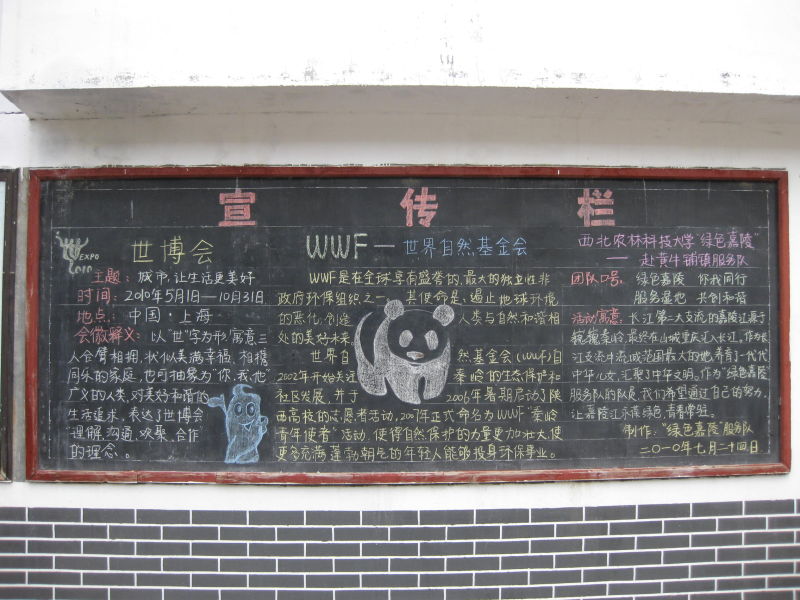 宣传栏
EXPO
2010
世博会
主题：城市，让生活更美好
时间：2010年5月1日—10月31日
地点：中国·上海
会徽释义：以“世”字为形寓意三
人合臂相拥，状似美满幸福、相携
同乐的家庭，也可抽象为“你、我、他”
广义的人类，对美好和谐的
生活追求，表达了世博会
“理解、沟通、欢聚、合作”
的理念。
WWF—世界自然基金会
WWF是在全球享有盛誉的、最大的独立性非
政府环保组织之一，其使命是：遏止地球环境
的恶化，创造人类与自然和谐相
处的美好未来。
世界自然基金会(WWF)自
2002年开始关注秦岭的生态保护和
社区发展，并于2006年暑期启动了陕
西高校的志愿者活动，2007年正式命名为WWF“秦岭
青年使者”活动，使得自然保护的力量更加壮大，使
更多充满蓬勃朝气的年轻人能够投身环保事业。
西北农林科技大学“绿色嘉陵”
——赴黄牛铺镇服务队
团队口号：绿色嘉陵 你我同行
服务湿地 共创和谐
活动寓意：长江第二大支流的嘉陵江源于
巍巍秦岭，最终在山城重庆汇入长江。作为长
江支流中流域范围最大的她，养育了一代代
中华儿女，汇聚了中华文明。作为“绿色嘉陵”
服务队的队员，我们希望通过自己的努力，
让嘉陵江永葆绿色，青春常驻。
制作：“绿色嘉陵”服务队
二〇一〇年七月二十四日